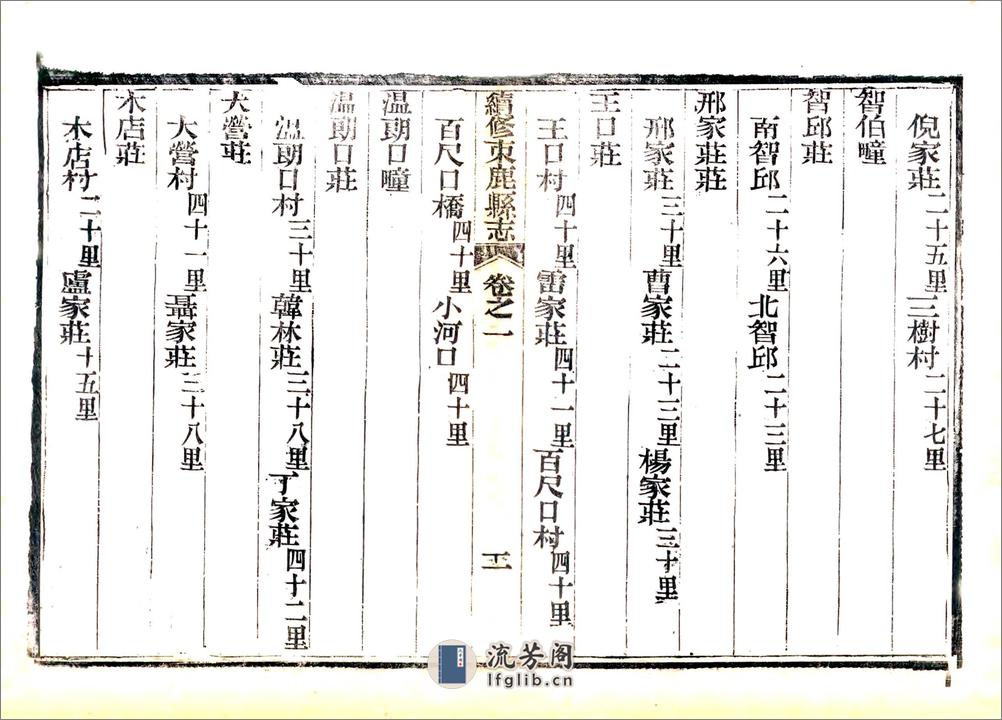 倪家莊二十五里三樹村二十七里
智伯疃
智邱莊
南智邱二十六里北智邱二十三里
邢家莊莊
邢家莊三十里曹家莊二十三里楊家莊三十里
王口莊
王口村四十里雷家莊四十一里百尺口村四十里
續修東鹿縣志 卷之一
百尺口橋四十里小河口四十里
温朗口疃
温朗口莊
温朗口村三十里韓林莊三十八里丁家莊四十二里
大營莊
大營村四十一里聶家莊三十八里
木店莊
木店村二十里盧家莊十五里
流芳阁
lfglib.cn